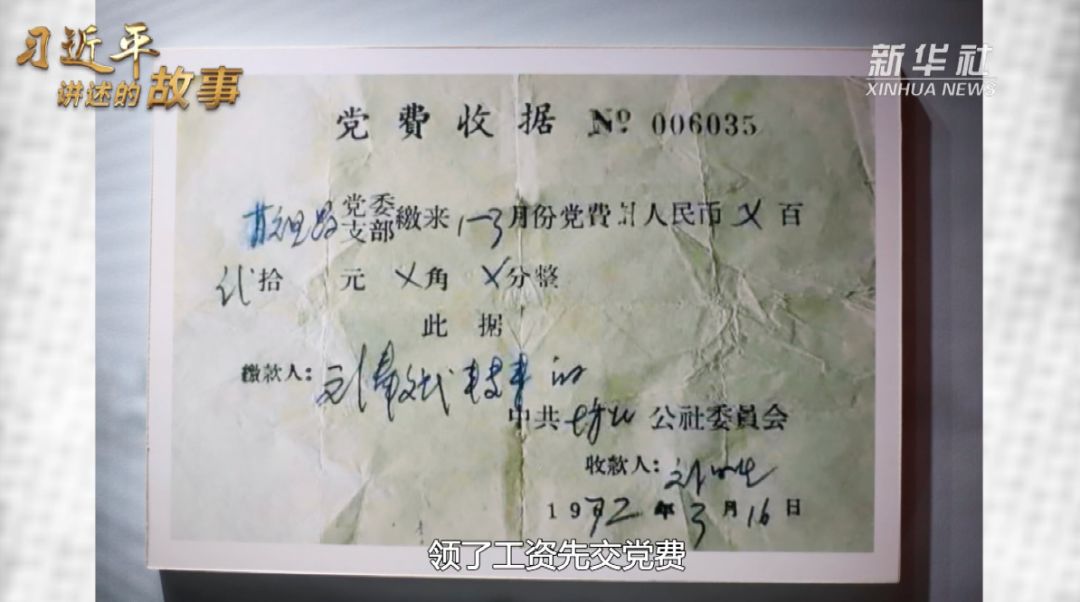 习近平
讲述的故事
新华社
XINHUA NEWS
党费收据 No 006035
党委
支部缴来1-3月份党费计人民币乂百
弍拾 元乂角乂分整
此据
缴款人：
中共 公社委員会
收款人：刘
1972年3月16日
领了工资先交党费